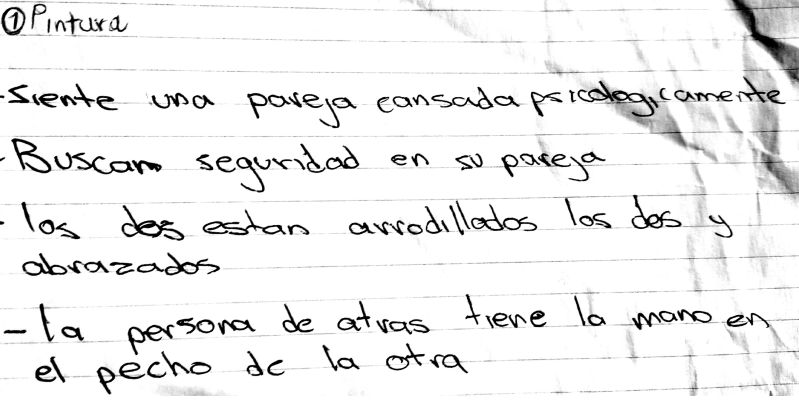 ① Pintura
- Siente una pareja cansada psicologicamente
- Buscan seguridad en su pareja
- los dos estan arrodillados los dos y
abrazados
- la persona de atras tiene la mano en
el pecho de la otra